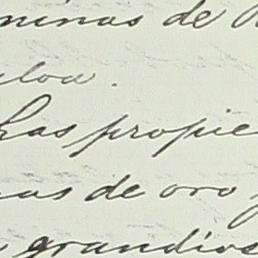 minas de
uloa.
Las propie
nas de oro y
grandios